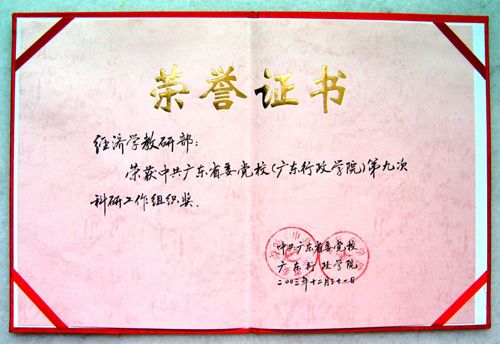 荣誉证书
经济学教研部：
荣获中共广东省委党校(广东行政学院)第九次
科研工作组织奖.
中共广东省委党校
广东行政学院
二00三年十二月三十一日